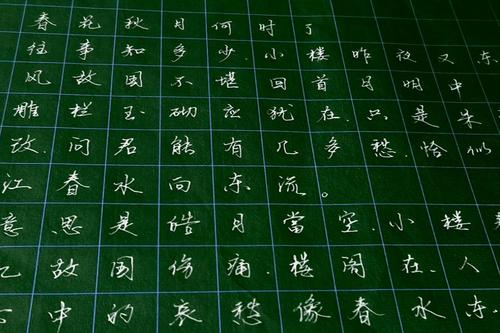 春花秋月何时了
往事知多少.小楼昨夜又东
风故国不堪回首月明中
雕栏玉砌应犹在.只是朱
改.问君能有几多愁.恰似
江春水向东流。
意思是皓月當空.小楼
故国伤痛.楼阁在.人
中的哀愁像春水东